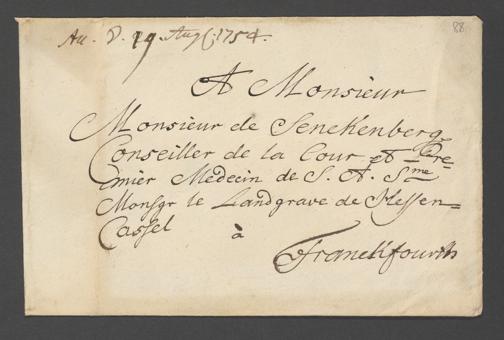 88
Au. d. 19. Aug. 1754.
A Monsieur
Monsieur de Senckenberg
Conseiller de la Cour et Pre=
mier Medecin de S. A. Sme
Monsgr le Landgrave de Hessen=
Cassel
à
Franckfourth